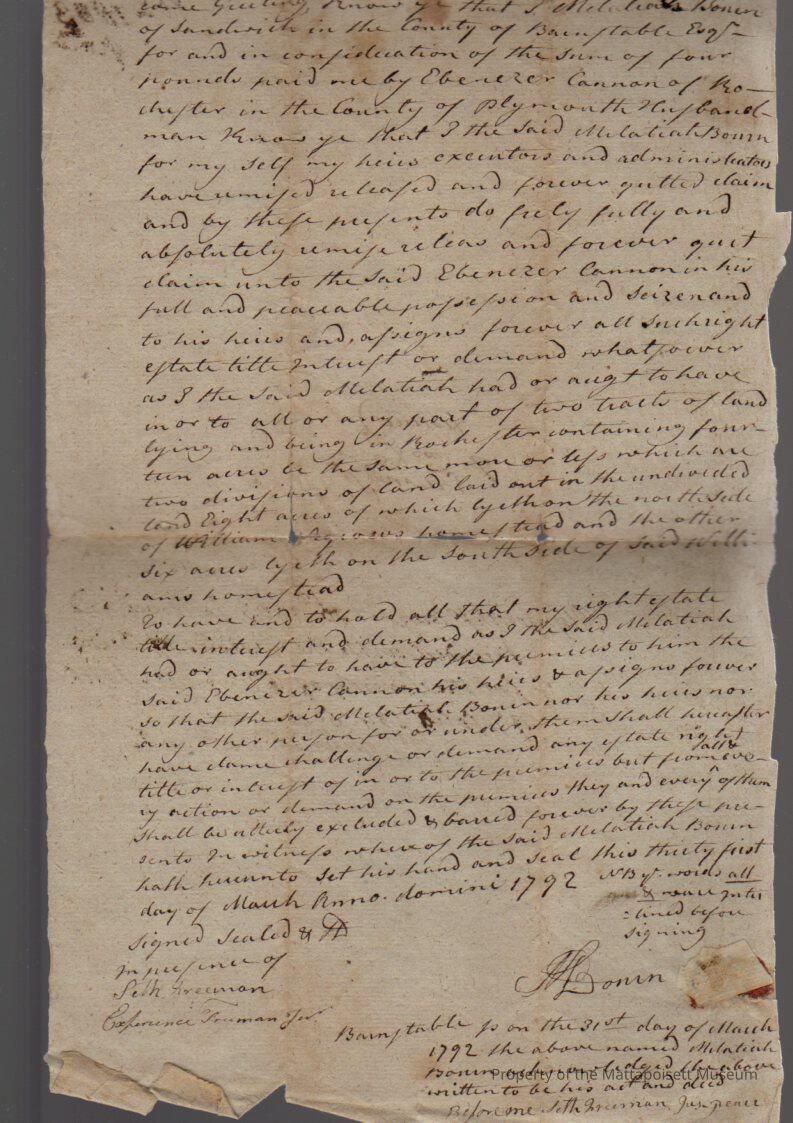 come Greeting Know ye that I Melatiah Bourn
of Sandwich in the County of Barnstable Esqr
for and in consideration of the sum of four
pounds paid me by Ebenezer Cannon of Ro-
chester in the County of Plymouth Husband-
man Know ye that I the said Melatiah Bourn
for my self my heirs executors and administrators
have remised released and forever quitted claim
and by these presents do frely fully and
absolutely remise releas and forever quit
claim unto the said Ebenezer Cannon in his
full and peaceable possession and seizen and
to his heirs and assigns forever all such right
estate title Interest or demand whatsoever
as I the said Melatiah had or augt to have
in or to all or any part of two tracts of land
lying and being in Rochester containing four-
teen acres be the same more or less which are
two divisions of land laid out in the undivided
land Eight acres of which lyeth on the north side
of William homestead and the other
six acres lyeth on the south side of said Willi
ams homestead
To have and to hold all that my right estate
title interest and demand as I the said Melatiah
had or aught to have to the premises to him the
said Ebenezer Cannon his heirs & assigns forever
so that the said Melatiah Bourn nor his heirs nor
any other person for or under them shall hereafter
have clame challenge or demand any estate right
title or interest of in or to the premises but from all & eve-
ry action or demand on the premises they and every of them
shall be utterly excluded & barred forever by these pre-
sents In witness whereof the said Melatiah Bourn
hath hereunto set his hand and seal this thirty first
day of March Anno domini 1792 NB ye words all
& ware inter
=lined before
signing
Signed Sealed &
in presence of
Seth Freeman
Experience Freeman Jur
M Bourn
Barnstable ss on the 31st day of March
1792 the above named Melatiah
Bourn acknowledged the above
written to be his act and deed
Before me Seth Freeman Jus peace
Property of the Mattapoisett Museum